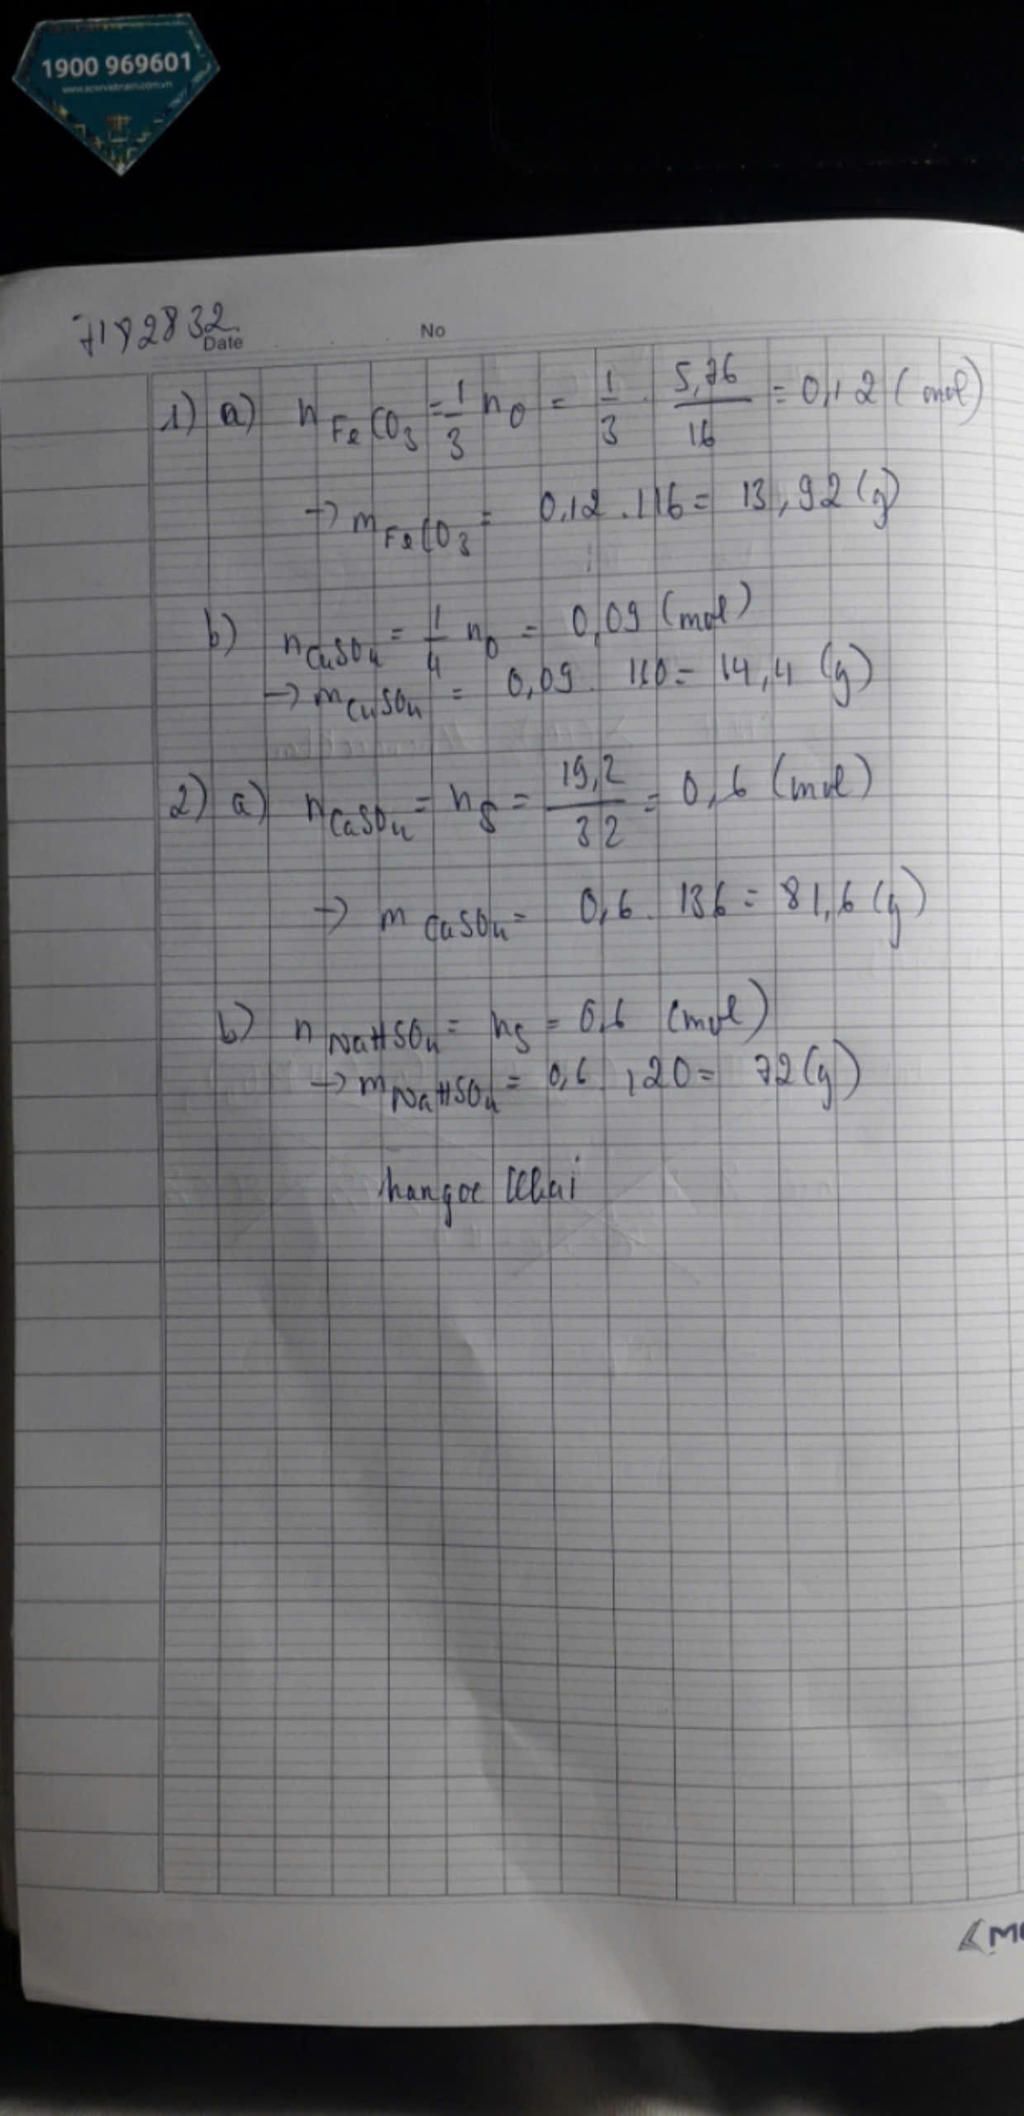 1900 969601
7192832
Date
No
1) a) n FeCO3 = 1/3 nO = 1/3 . 5,76/16 = 0,12 (mol)
→ mFeCO3 = 0,12 . 116 = 13,92 (g)
b) nCuSO4 = 1/4 nO = 0,09 (mol)
→ mCuSO4 = 0,09 . 160 = 14,4 (g)
2) a) nCaSO4 = nS = 19,2/32 = 0,6 (mol)
→ mCaSO4 = 0,6 . 136 = 81,6 (g)
b) nNaHSO4 = nS = 0,6 (mol)
→ mNaHSO4 = 0,6 . 120 = 72 (g)
hangoc Khai